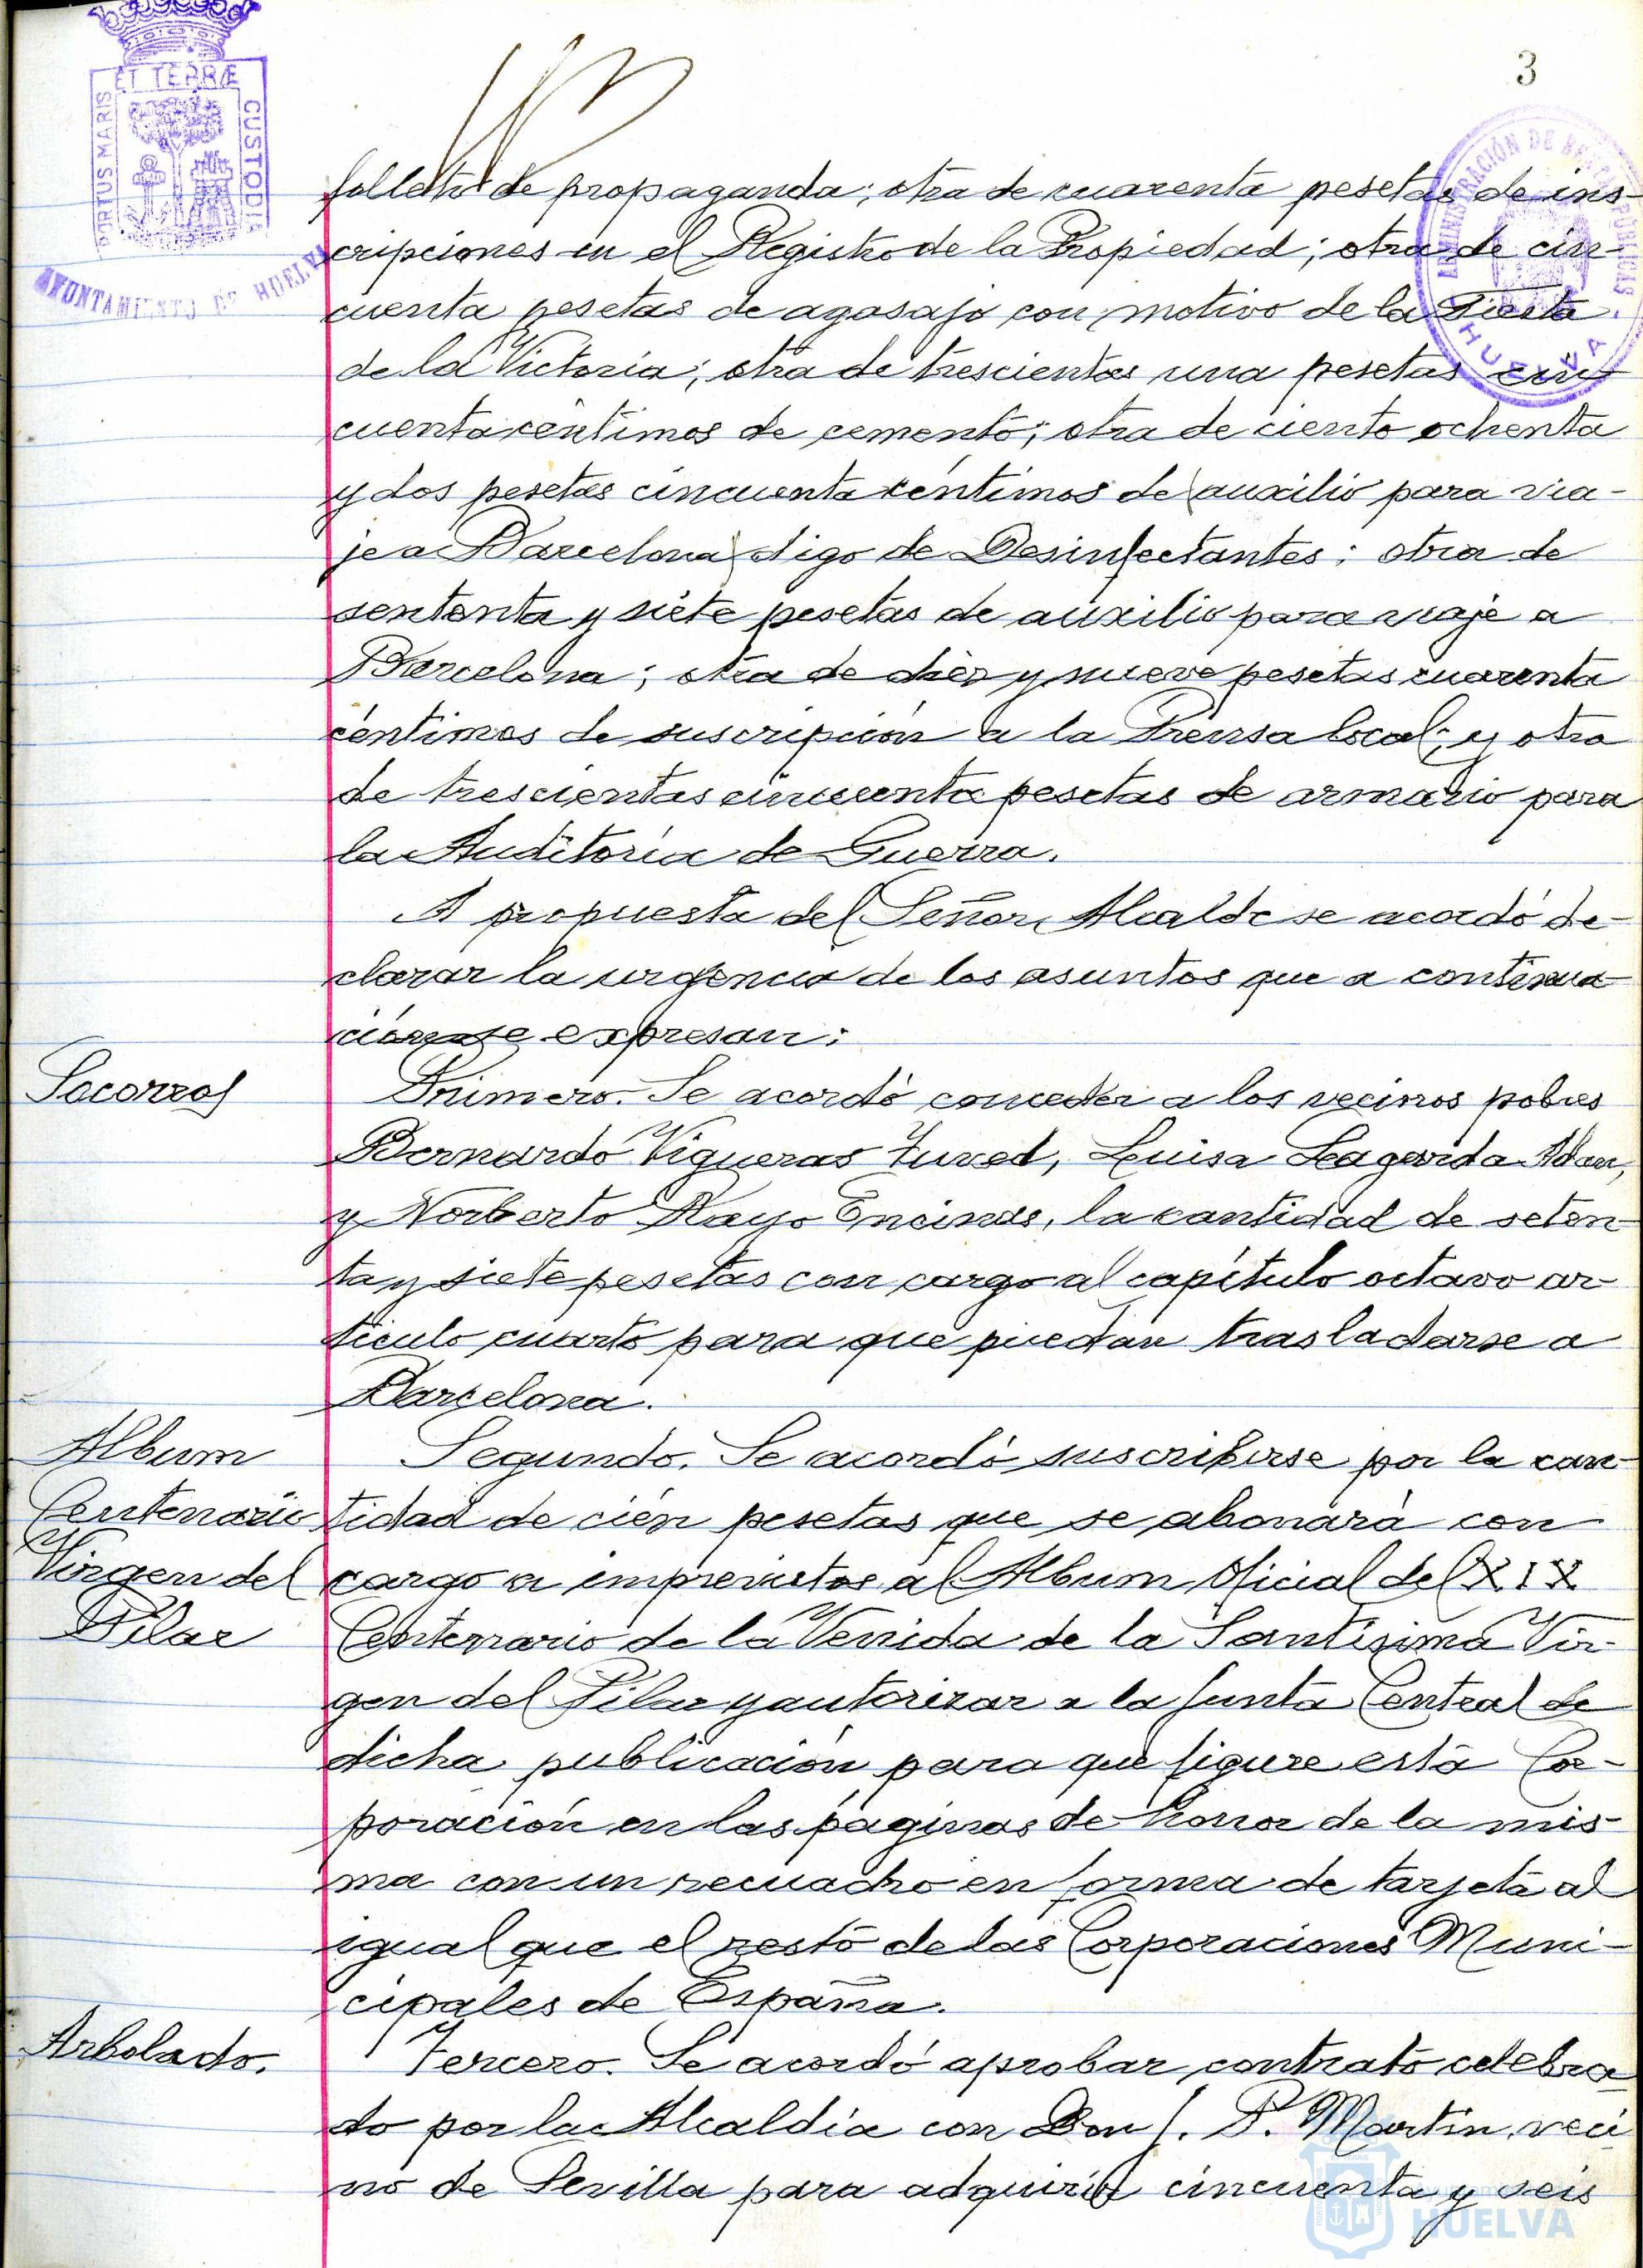 3
ET TERRÆ
PORTUS MARIS
CUSTODIA
AYUNTAMIENTO DE HUELVA
ADMINISTRACIÓN DE
HUELVA
folletos de propaganda; otra de cuarenta pesetas de ins-
cripciones en el Registro de la Propiedad; otra de cin-
cuenta pesetas de agasajo con motivo de la Fiesta
de la Victoria; otra de trescientas una pesetas cin-
cuenta céntimos de cemento; otra de ciento ochenta
y dos pesetas cincuenta céntimos de (auxilio para via-
je a Barcelona) digo de Desinfectantes; otra de
sententa y siete pesetas de auxilio para viaje a
Barcelona; otra de diez y nueve pesetas cuarenta
céntimos de suscripción a la Prensa local; y otra
de trescientas cincuenta pesetas de armario para
la Auditoría de Guerra.
A propuesta del Señor Alcalde se acordó de-
clarar la urgencia de los asuntos que a continua-
ción se expresan:
Socorros
Primero. Se acordó conceder a los vecinos pobres
Bernardo Vigueras Luisa Adan,
y Norberto Rayo Encinas, la cantidad de seten-
ta y siete pesetas con cargo al capítulo octavo ar-
tículo cuarto para que puedan trasladarse a
Barcelona.
Album
Centenario
Virgen del
Pilar
Segundo. Se acordó suscribirse por la can-
tidad de cien pesetas que se abonará con
cargo a imprevistos al Album Oficial del XIX
Centenario de la Venida de la Santísima Vir-
gen del Pilar y autorizar a la Junta Central de
dicha publicación para que figure esta Cor-
poración en las páginas de honor de la mis-
ma con un recuadro en forma de tarjeta al
igual que el resto de las Corporaciones Muni-
cipales de España.
Arbolado.
Tercero. Se acordó aprobar contrato celebra-
do por la Alcaldía con Don J. P. Martin, veci
no de Sevilla para adquirir cincuenta y seis
HUELVA